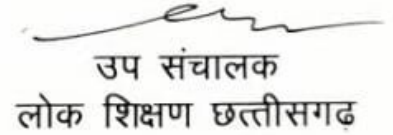 उप संचालक
लोक शिक्षण छत्तीसगढ़